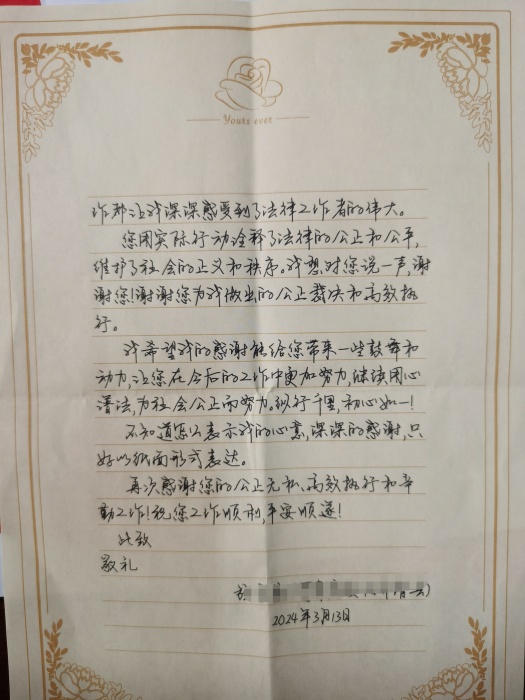 Yours ever
作都让我深深感受到了法律工作者的伟大。
您用实际行动诠释了法律的公正和公平,
维护了社会的正义和秩序。我想对您说一声,谢
谢您!谢谢您为我做出的公正裁决和高效执
行。
我希望我的感谢能给您带来一些鼓舞和
动力,让您在今后的工作中更加努力,继续用心
谱法,为社会公正而努力。纵行千里,初心如一!
不知道怎么表示我的心意,深深的感谢,只
好以纸面形式表达。
再次感谢您的公正无私、高效执行和辛
勤工作!祝您工作顺利,平安顺遂!
此致
敬礼
2024年3月13日